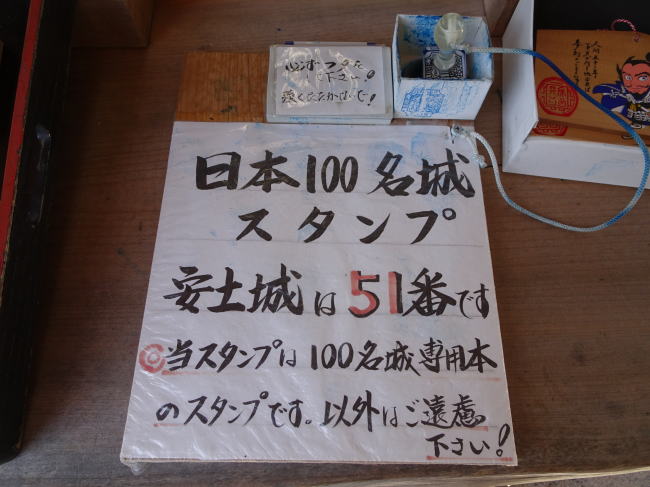 下さい！
強くたたかないで！
日本100名城
スタンプ
安土城は51番です
◎当スタンプは100名城専用本
のスタンプです。以外はご遠慮
下さい！